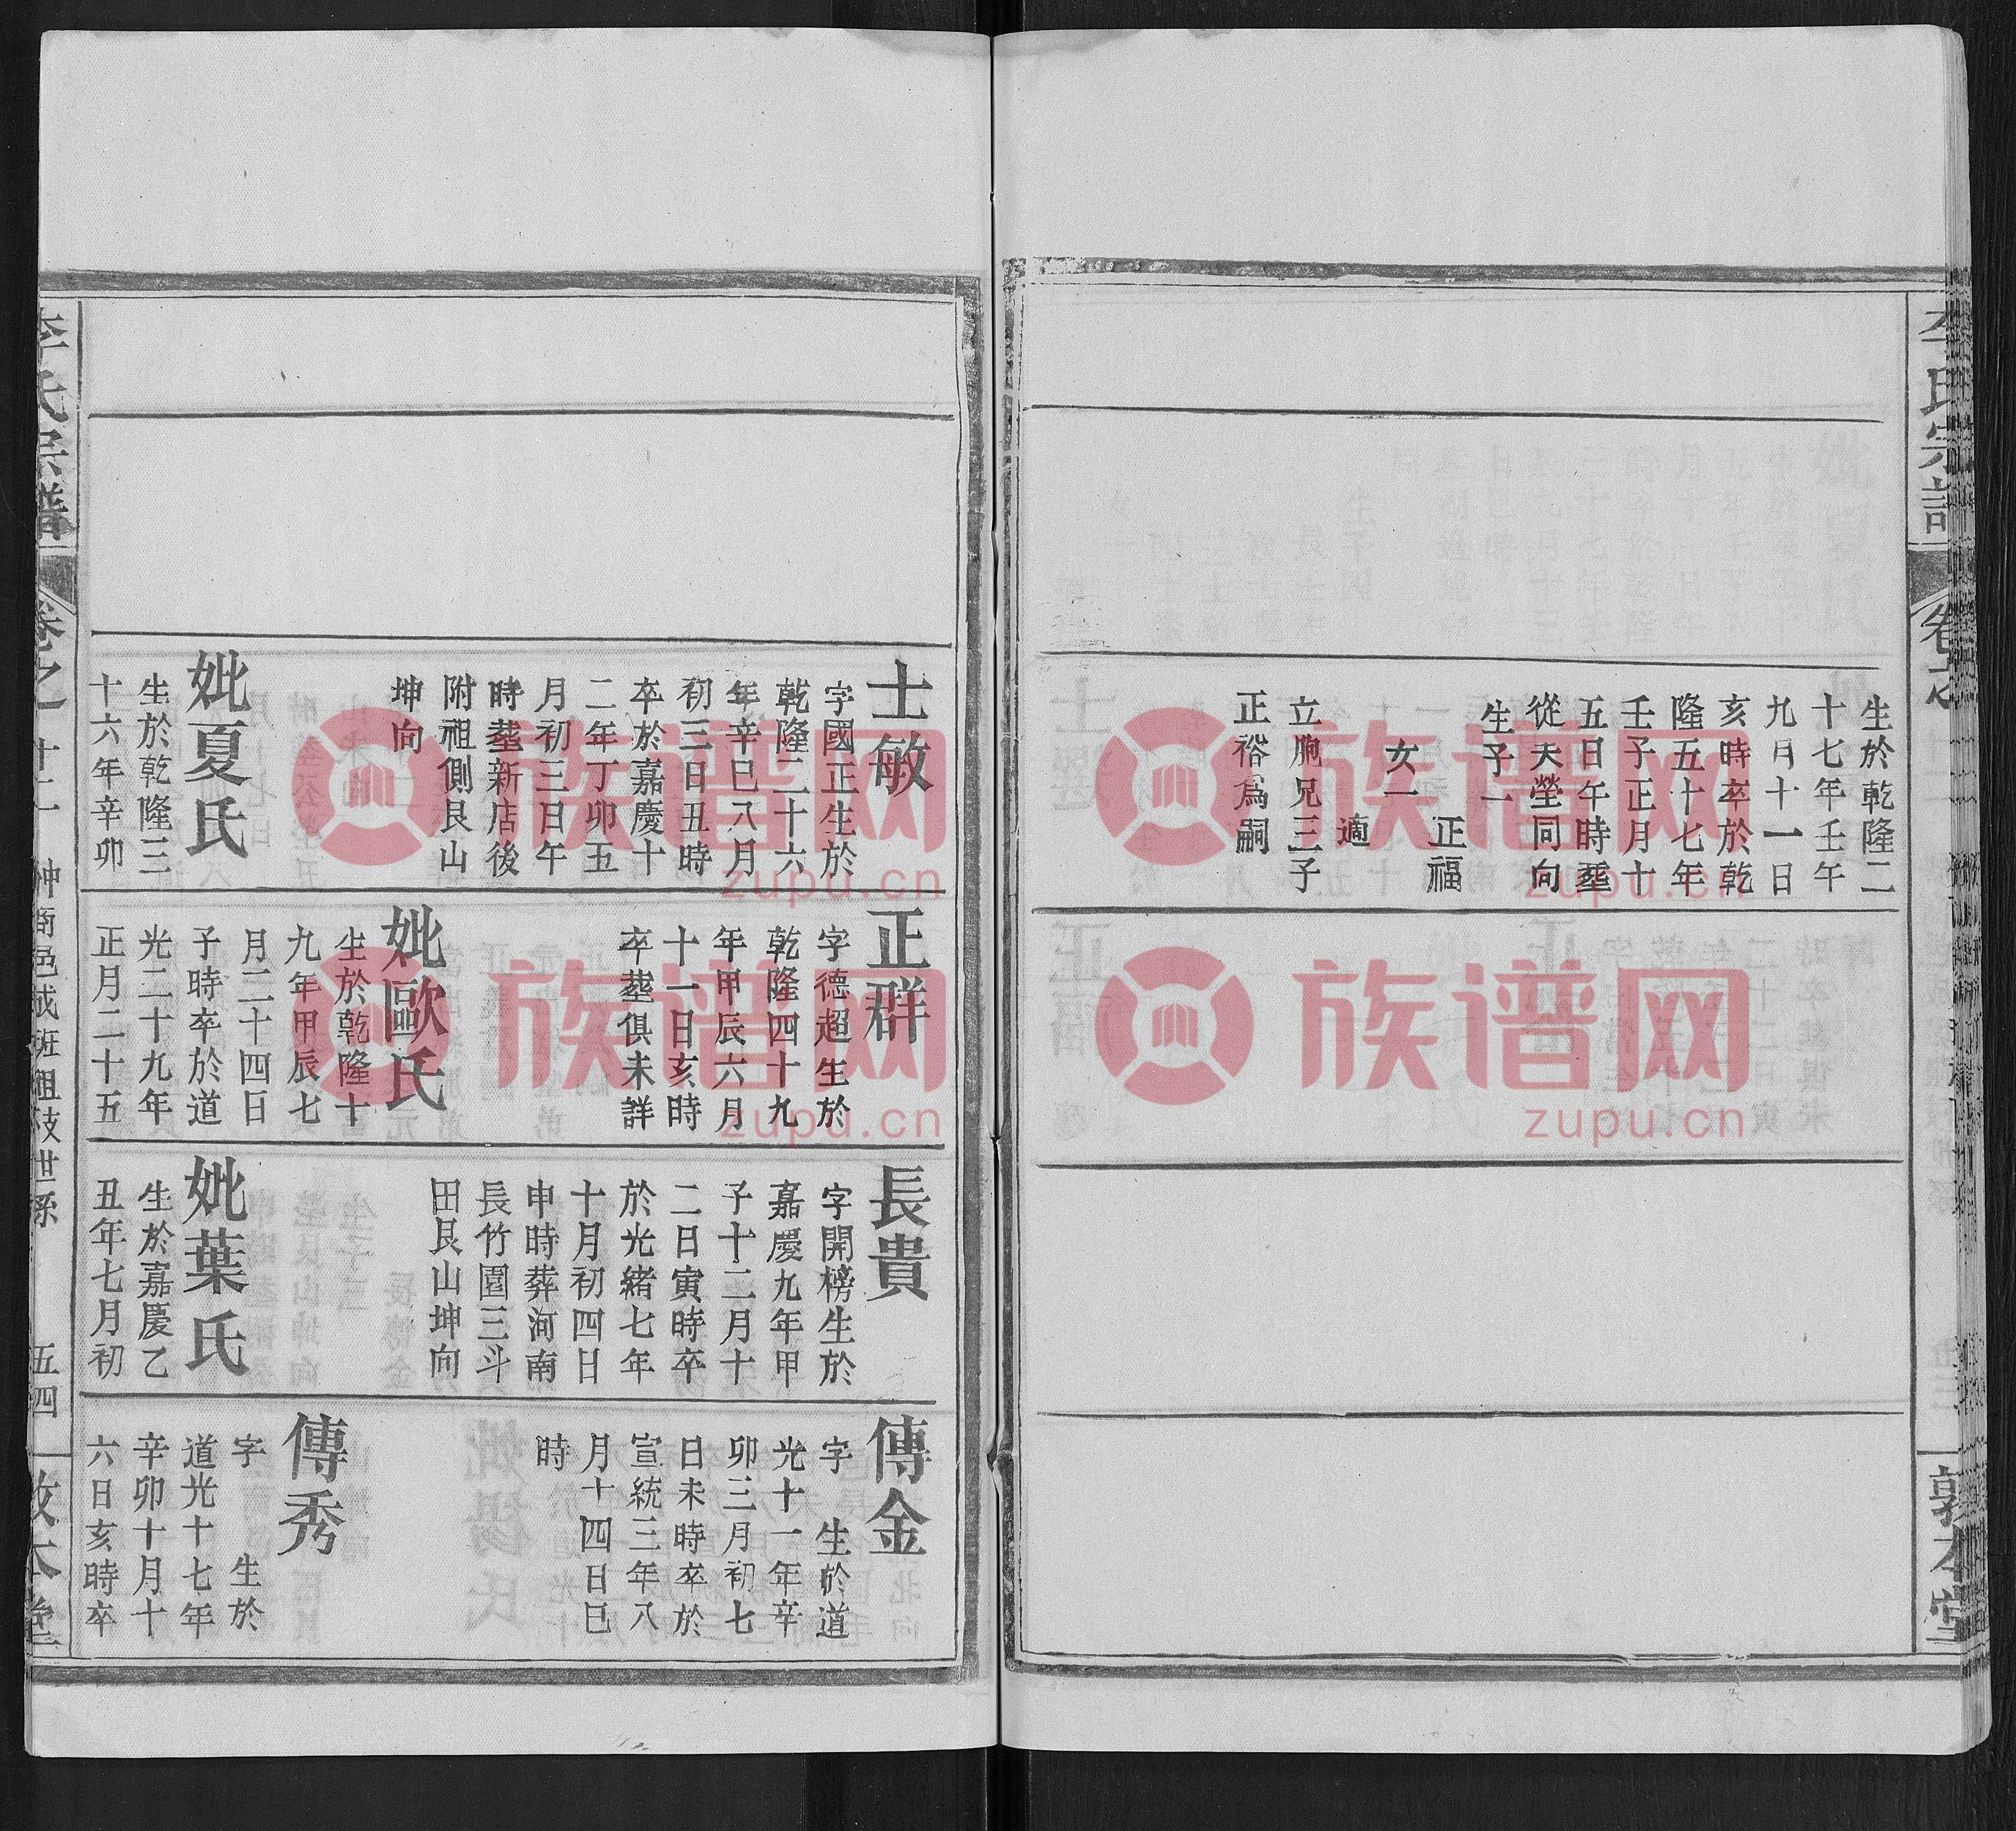 生於乾隆二
十七年壬午
九月十一日
亥時卒於乾
隆五十七年
壬子正月十
五日午時塟
從天塋同向
生子一
正福
女一
適
立胞兄三子
正裕爲嗣
敦本堂
士敏
字國正生於
乾隆二十六
年辛巳八月
初三日丑時
卒於嘉慶十
二年丁卯五
月初三日午
時塟新店後
附祖側艮山
坤向
妣夏氏
生於乾隆三
十六年辛卯
正群
字德超生於
乾隆四十九
年甲辰六月
十一日亥時
卒葬俱未詳
妣歐氏
生於乾隆十
九年甲辰七
月二十四日
子時卒於道
光二十九年
正月二十五
長貴
字開榜生於
嘉慶九年甲
子十二月十
二日寅時卒
於光緒七年
十月初四日
申時葬河南
長竹園三斗
田艮山坤向
妣葉氏
生於嘉慶乙
丑年七月初
傳金
字 生於道
光十一年辛
卯三月初七
日未時卒於
宣統三年八
月十四日巳
時
傳秀
字 生於
道光十七年
辛卯十月十
六日亥時卒
李氏宗譜
五四
族谱网
zupu.cn
族谱网
zupu.cn
族谱网
zupu.cn
族谱网
zupu.cn